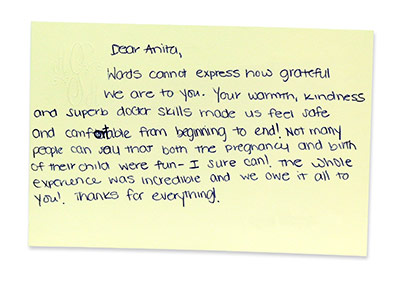 Dear Anita,
Words cannot express how grateful
we are to you. Your warmth, kindness
and superb doctor skills made us feel safe
and comfortable from beginning to end! Not many
people can say that both the pregnancy and birth
of their child were fun- I sure can! The whole
experience was incredible and we owe it all to
you! Thanks for everything!